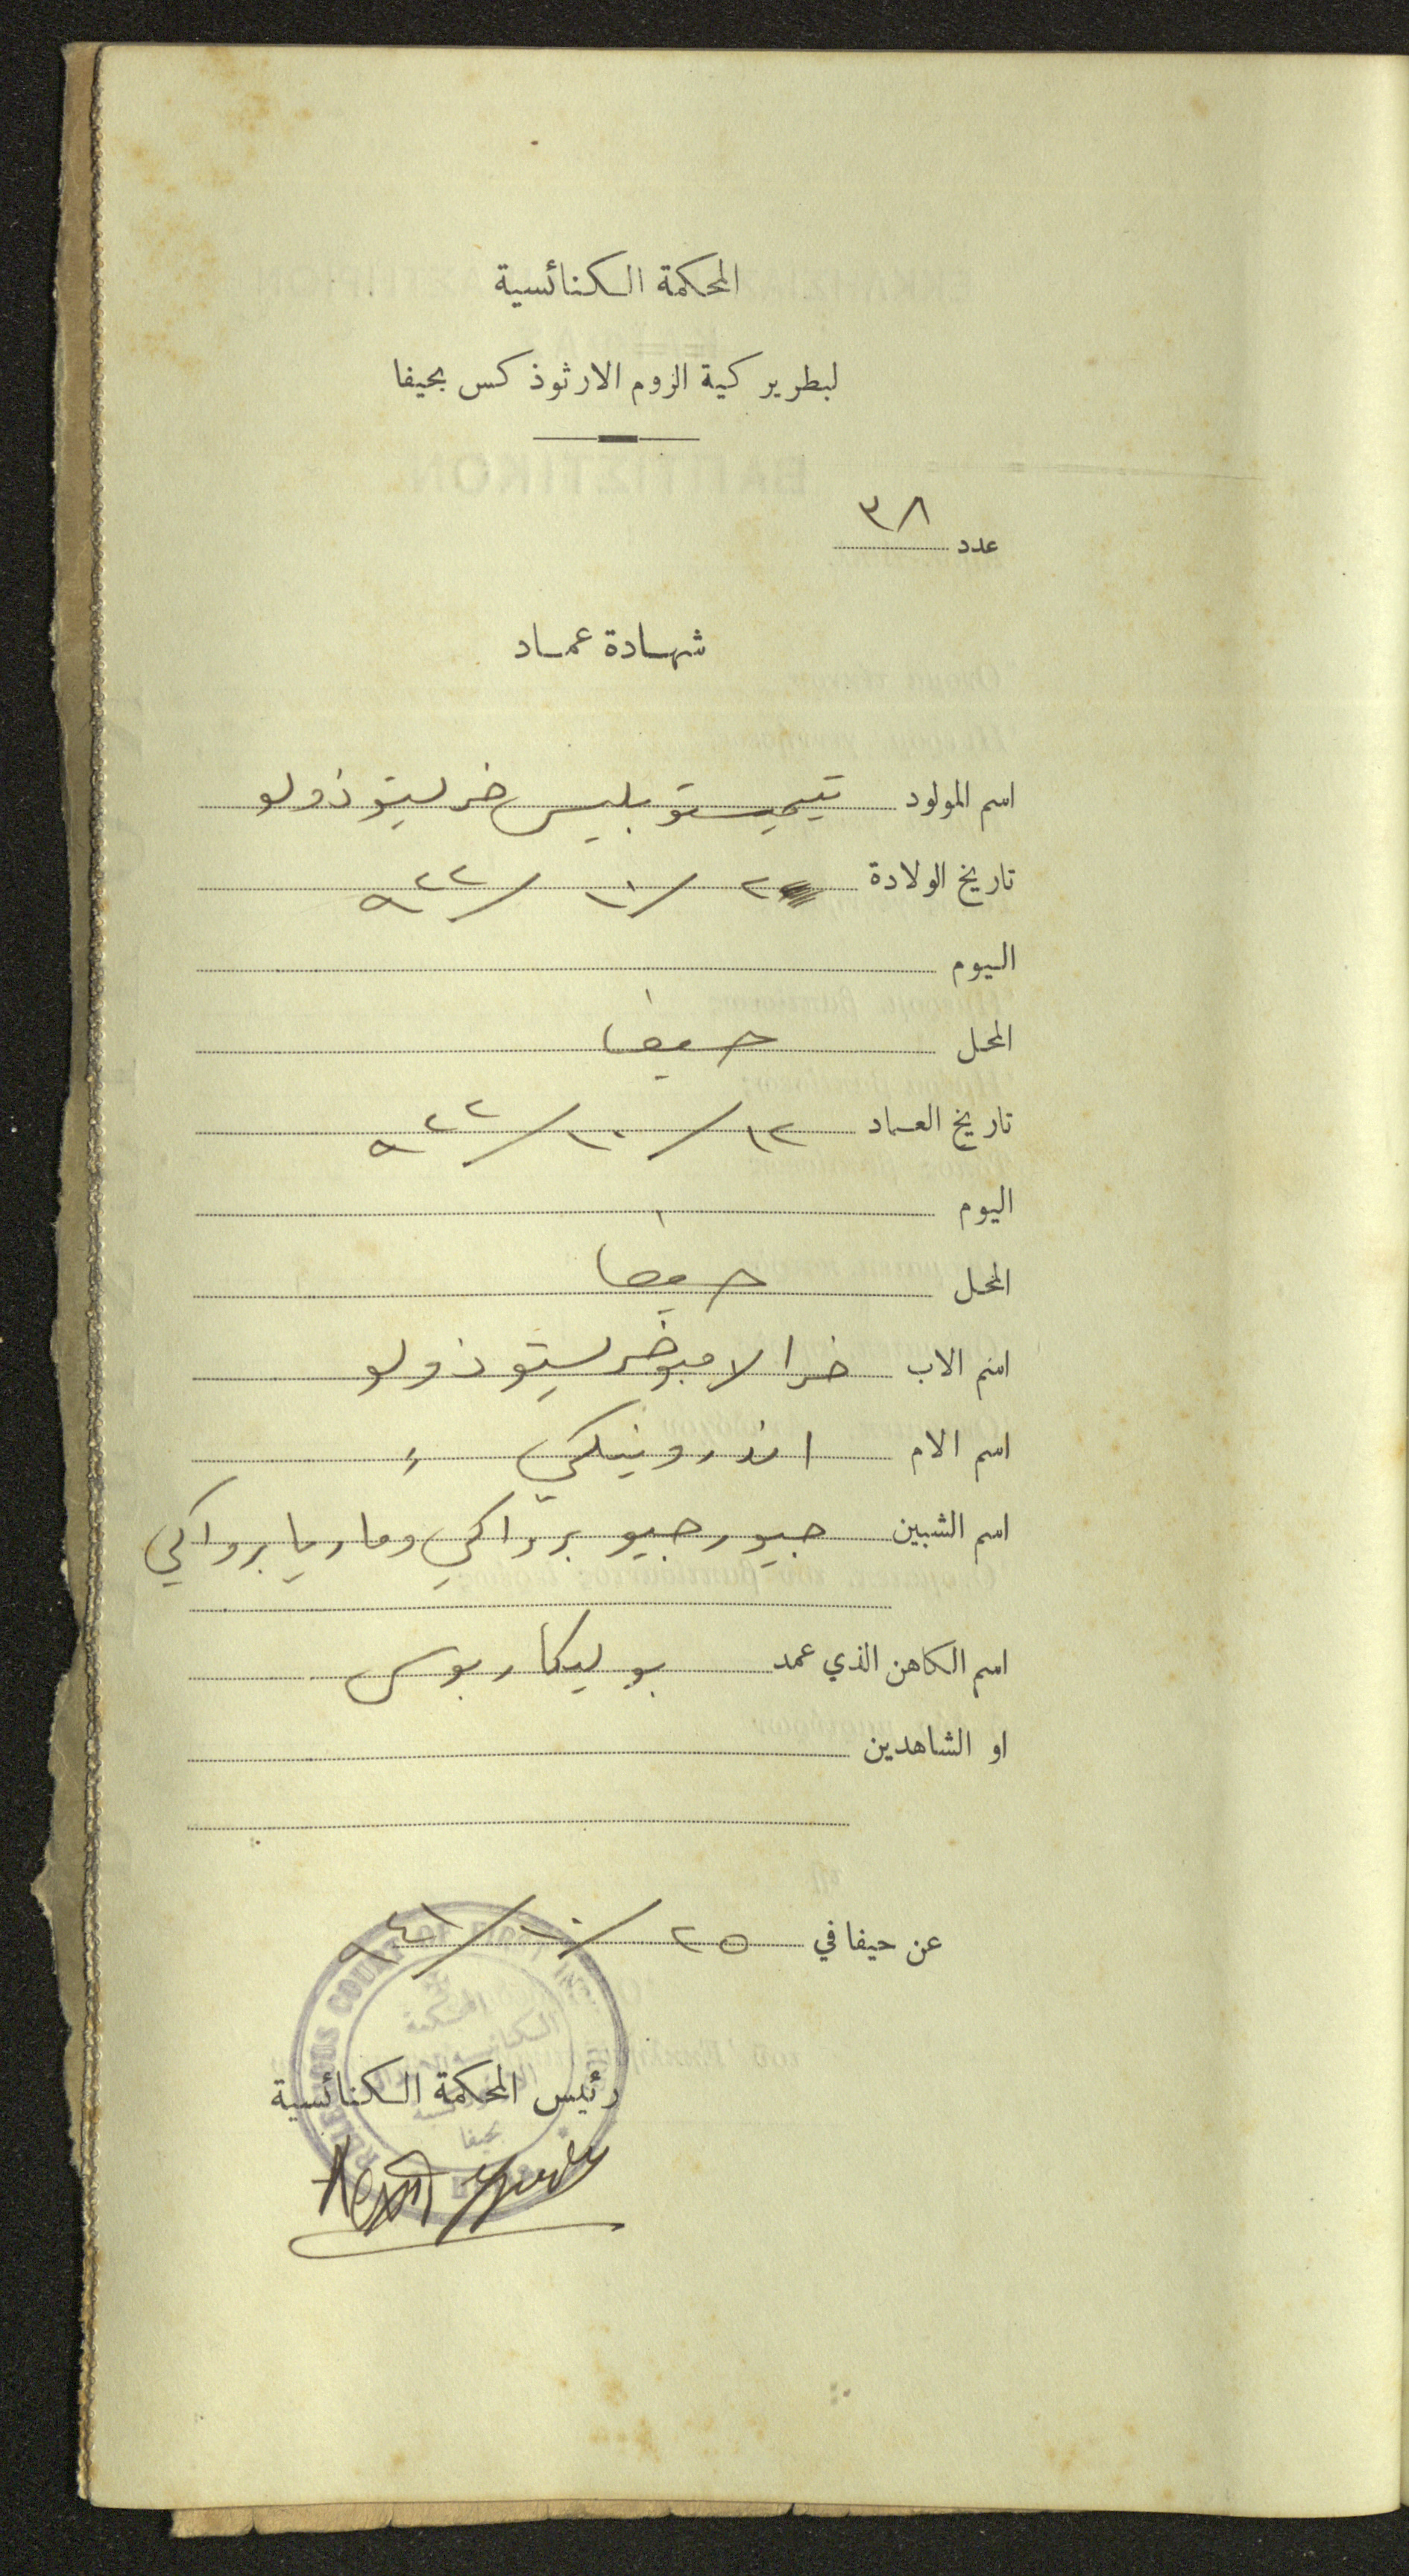 المحكمة الكنائسية
لبطريركية الروم الارثوذكس بحيفا
عدد ٣٨
شهادة عماد
اسم المولود تيميستوبليس خريستوذولو
تاريخ الولادة ٢/١/٩٢٢
اليوم
المحل حيفا
تاريخ العماد ١٢/١٠/٩٢٢
اليوم
المحل حيفا
اسم الاب خرالامبو خريستوذولو
اسم الام اندرونيكي
اسم الشبين جيورجيو برواكي وماريا برواكي
اسم الكاهن الذي عمد بوليكاربوس
او الشاهدين
عن حيفا في ٢٥/١٠/٩٤١
رئيس المحكمة الكنائسية
RELIGIOUS COURT
المحكمة
الكنائسية
بحيفا